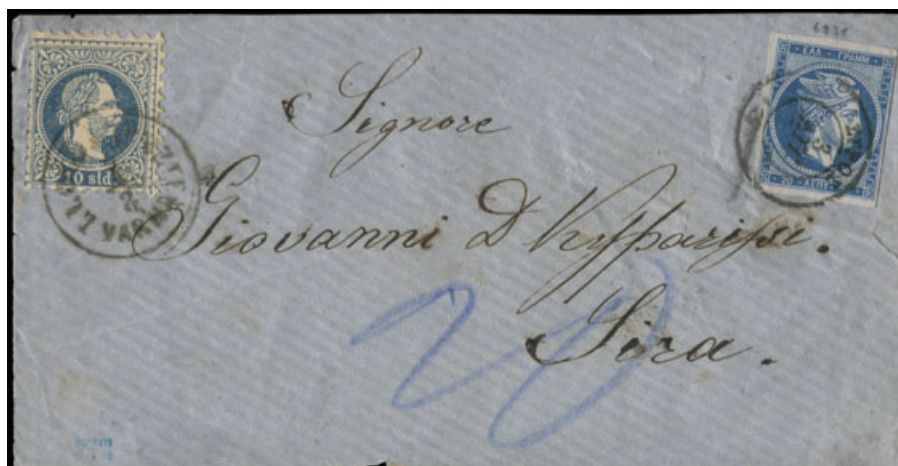 10 sld.
VARNA
ΕΛΛ. ΓΡΑΜΜ
20 ΛΕΠΤ.
Signore
Giovanni D Kypparissi.
Sira.
20